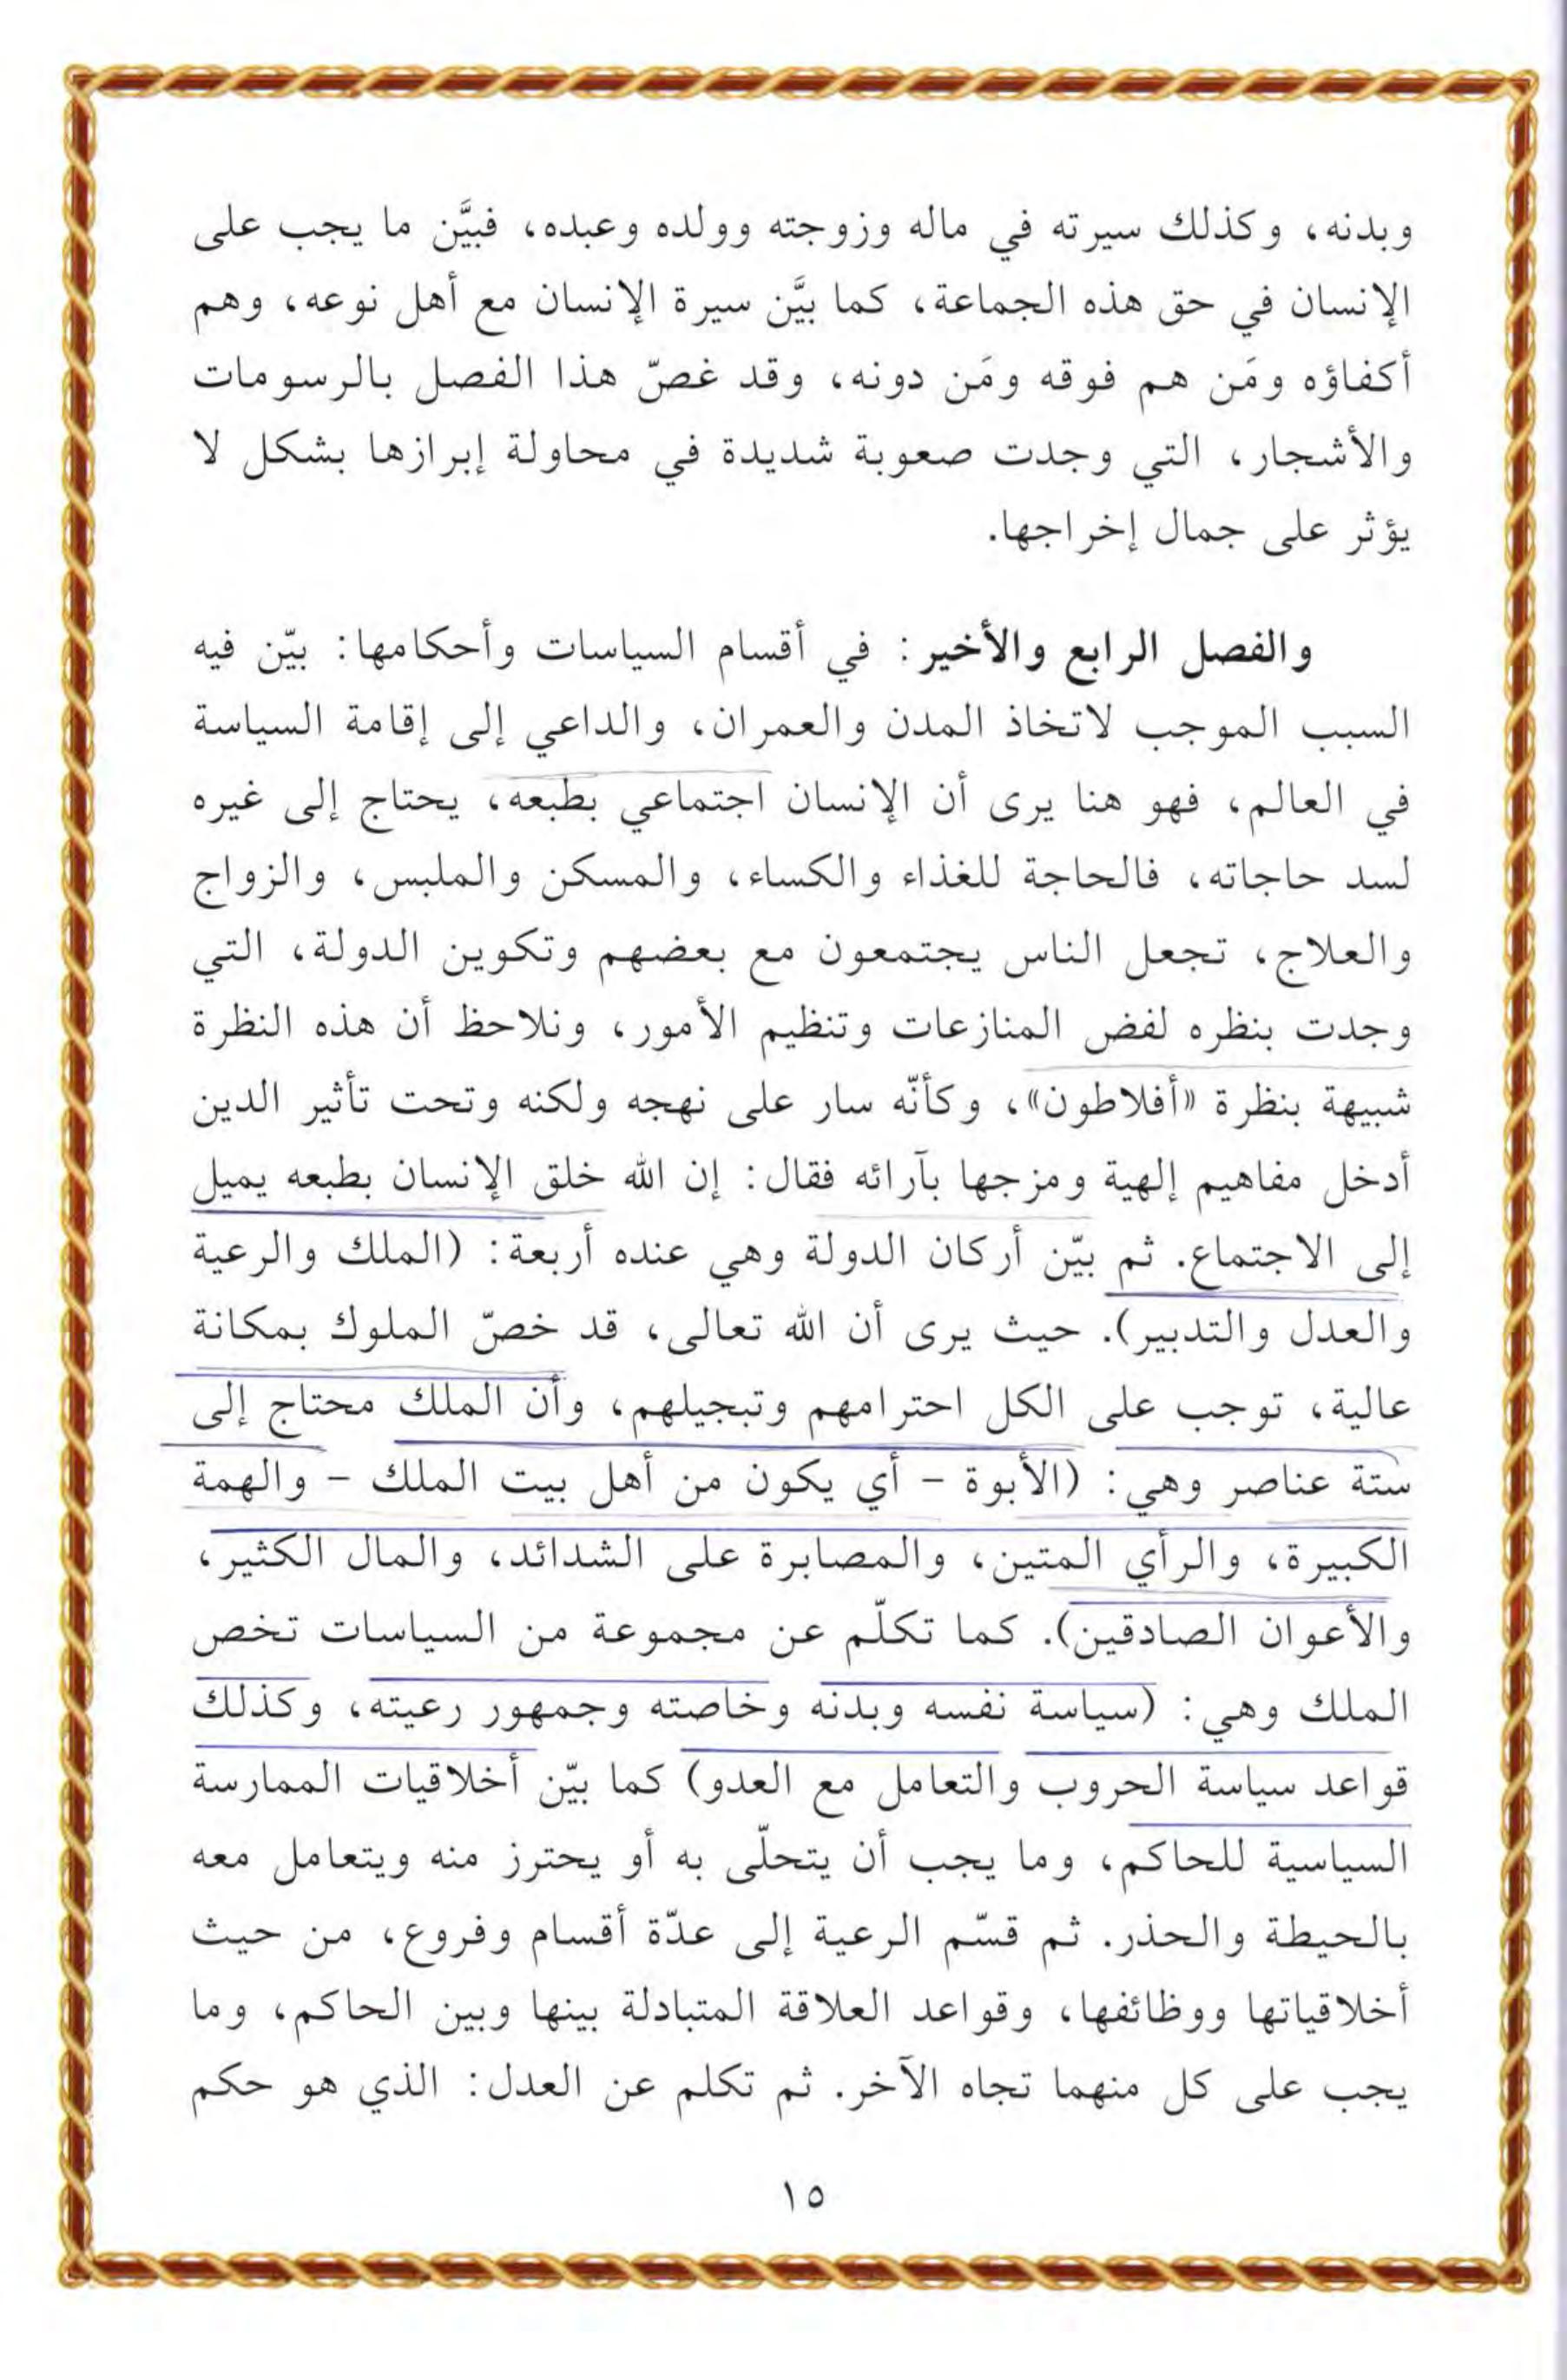 وبدنه، وكذلك سيرته في ماله وزوجته وولده وعبده، فبيَّن ما يجب على
الإنسان في حق هذه الجماعة، كما بيَّن سيرة الإنسان مع أهل نوعه، وهم
أكفاؤه ومَن هم فوقه ومَن دونه، وقد غصّ هذا الفصل بالرسومات
والأشجار، التي وجدت صعوبة شديدة في محاولة إبرازها بشكل لا
يؤثر على جمال إخراجها.
والفصل الرابع والأخير: في أقسام السياسات وأحكامها: بيّن فيه
السبب الموجب لاتخاذ المدن والعمران، والداعي إلى إقامة السياسة
في العالم، فهو هنا يرى أن الإنسان اجتماعي بطبعه، يحتاج إلى غيره
لسد حاجاته، فالحاجة للغذاء والكساء، والمسكن والملبس، والزواج
والعلاج، تجعل الناس يجتمعون مع بعضهم وتكوين الدولة، التي
وجدت بنظره لفض المنازعات وتنظيم الأمور، ونلاحظ أن هذه النظرة
شبيهة بنظرة «أفلاطون»، وكأنّه سار على نهجه ولكنه وتحت تأثير الدين
أدخل مفاهيم إلهية ومزجها بآرائه فقال: إن الله خلق الإنسان بطبعه يميل
إلى الاجتماع. ثم بيّن أركان الدولة وهي عنده أربعة: (الملك والرعية
والعدل والتدبير). حيث يرى أن الله تعالى، قد خصّ الملوك بمكانة
عالية، توجب على الكل احترامهم وتبجيلهم، وأن الملك محتاج إلى
ستة عناصر وهي: (الأبوة - أي يكون من أهل بيت الملك - والهمة
الكبيرة، والرأي المتين، والمصابرة على الشدائد، والمال الكثير،
والأعوان الصادقين). كما تكلّم عن مجموعة من السياسات تخص
الملك وهي: (سياسة نفسه وبدنه وخاصته وجمهور رعيته، وكذلك
قواعد سياسة الحروب والتعامل مع العدو) كما بيّن أخلاقيات الممارسة
السياسية للحاكم، وما يجب أن يتحلّى به أو يحترز منه ويتعامل معه
بالحيطة والحذر. ثم قسّم الرعية إلى عدّة أقسام وفروع، من حيث
أخلاقياتها ووظائفها، وقواعد العلاقة المتبادلة بينها وبين الحاكم، وما
يجب على كل منهما تجاه الآخر. ثم تكلم عن العدل: الذي هو حكم
١٥